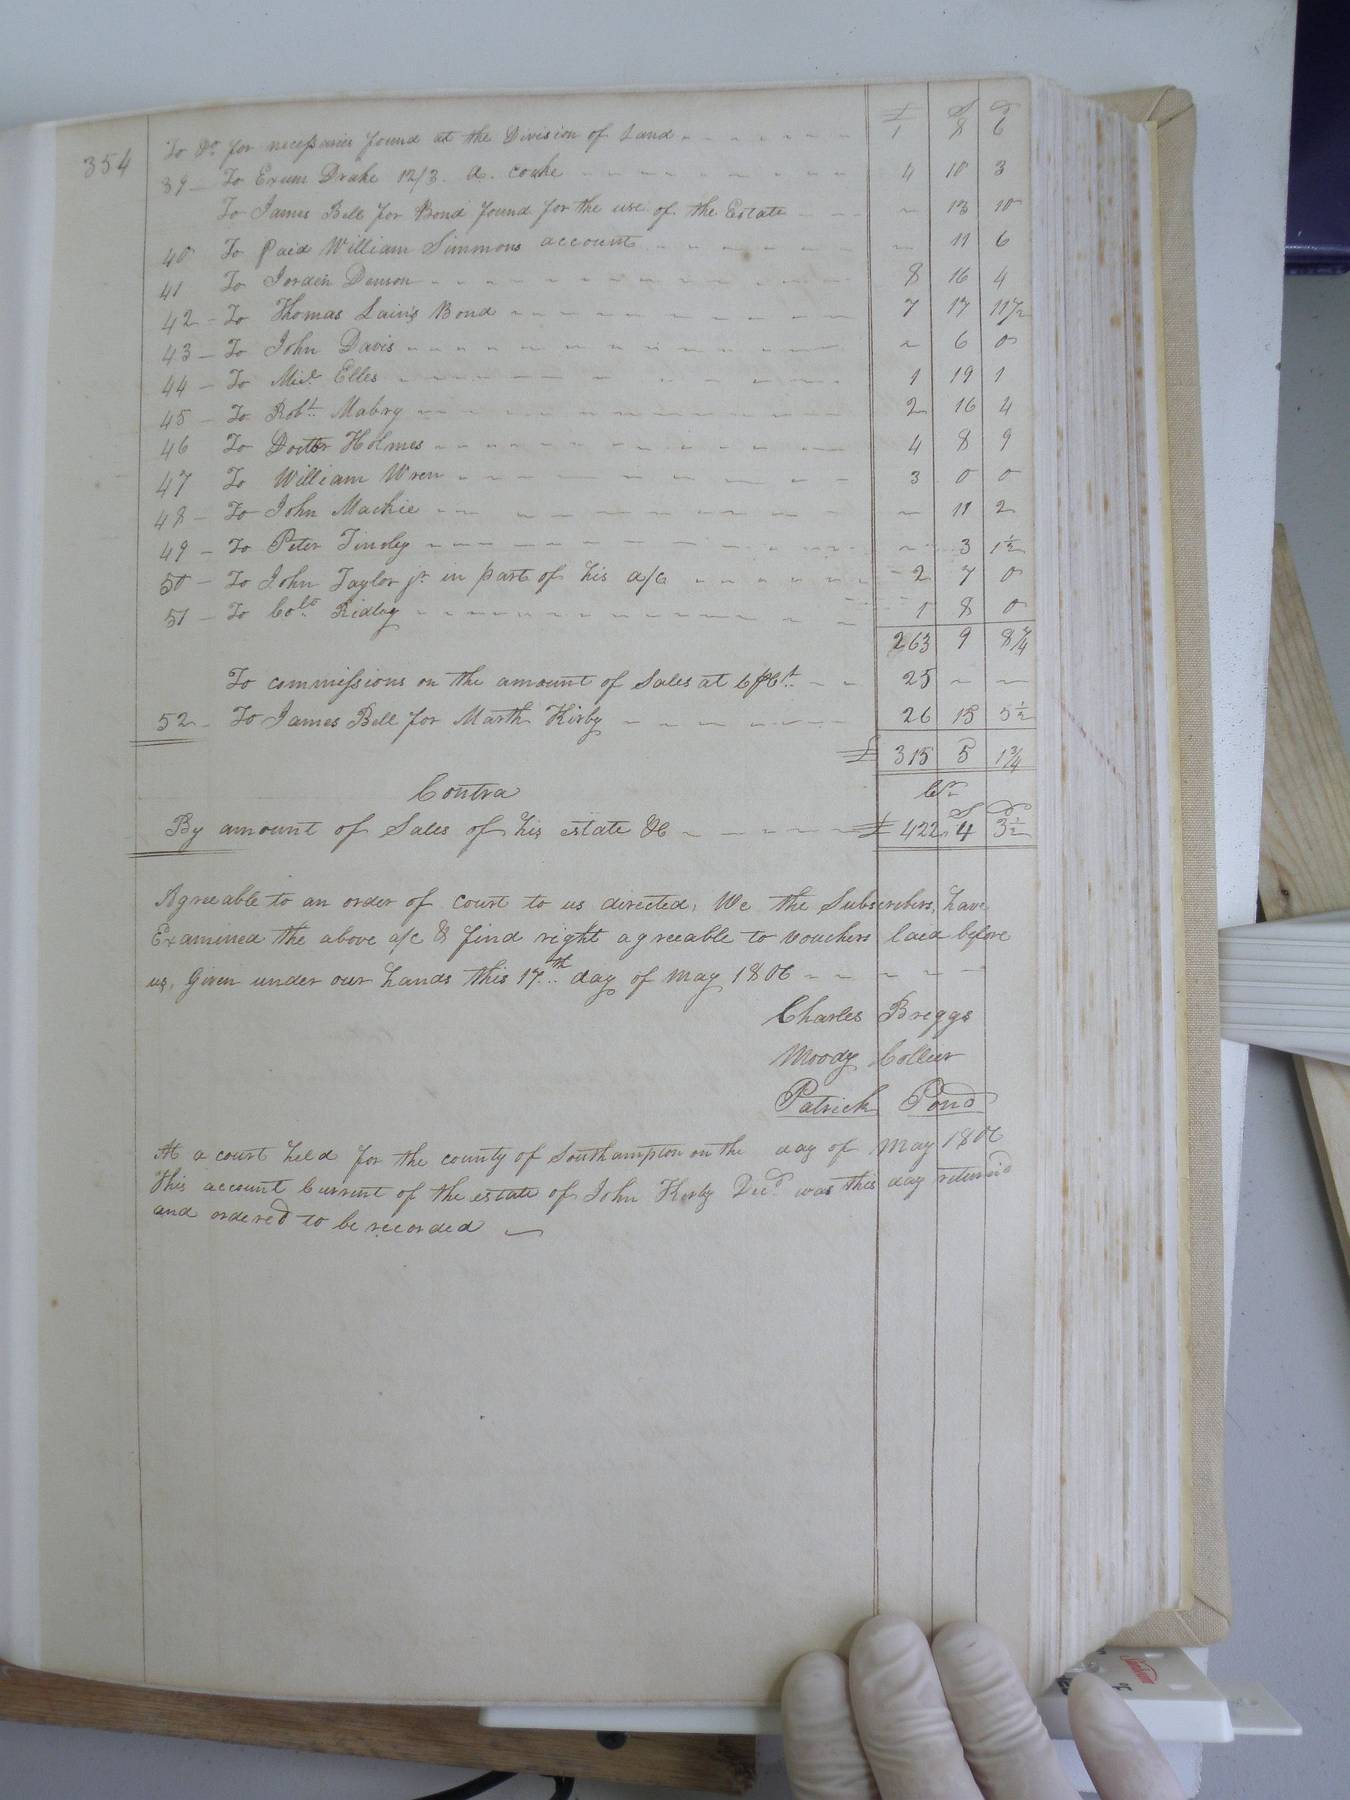 354
£ S D
To Do. for necessaries found at the Division of Land 1 8 6
39 To Exum Drake 12/3. A. cooke 4 10 3
To James Bell for Bond found for the use of the Estate 13 10
40 To Paid William Simmons account 11 6
41 To Jordin Denson 8 16 4
42 To Thomas Lain's Bond 7 17 11 1/2
43 To John Davis 6 0
44 To Micl. Elles 1 19 1
45 To Robt. Mabry 2 16 4
46 To Doctor Holmes 4 8 9
47 To William Wren 3 0 0
48 To John Mackie 11 2
49 To Peter Tinsley 3 1 1/2
50 To John Taylor jr. in part of his a/c 2 7 0
51 To Colo. Ridley 1 8 0
263 9 8
To commissions on the amount of Sales at 6 pCt. 25
52 To James Bell for Marth Kirby 26 15 5 1/2
£ 315 5 1 3/4
Contra Cr.
S D
By amount of Sales of his estate &c £ 422 4 3 1/2
Agreeable to an order of court to us directed, We the Subscribers, have
Examined the above a/c & find right agreeable to vouchers laid before
us, Given under our hands this 17th day of may 1806
Charles Briggs
Moody Collier
Patrick Pond
At a court held for the county of Southampton on the day of May 1806
This account Current of the estate of John Kirby Decd. was this day returned
and ordered to be recorded